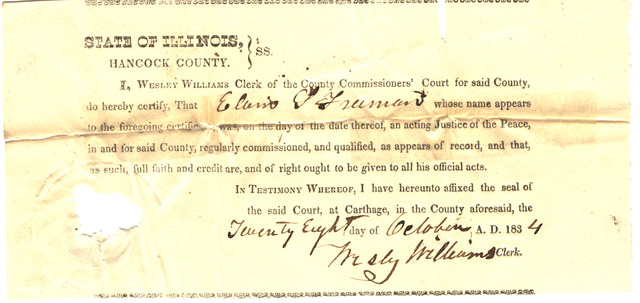 STATE OF ILLINOIS, } SS.
HANCOCK COUNTY.
I, WESLEY WILLIAMS Clerk of the County Commissioners' Court for said County,
do hereby certify, That Freeman whose name appears
to the foregoing certificate, was, on the day of the date thereof, an acting Justice of the Peace,
in and for said County, regularly commissioned, and qualified, as appears of record, and that,
as such, full faith and credit are, and of right ought to be given to all his official acts.
IN TESTIMONY WHEREOF, I have hereunto affixed the seal of
the said Court, at Carthage, in the County aforesaid, the
Twenty Eight day of October, A. D. 1834
Wesley Williams Clerk.